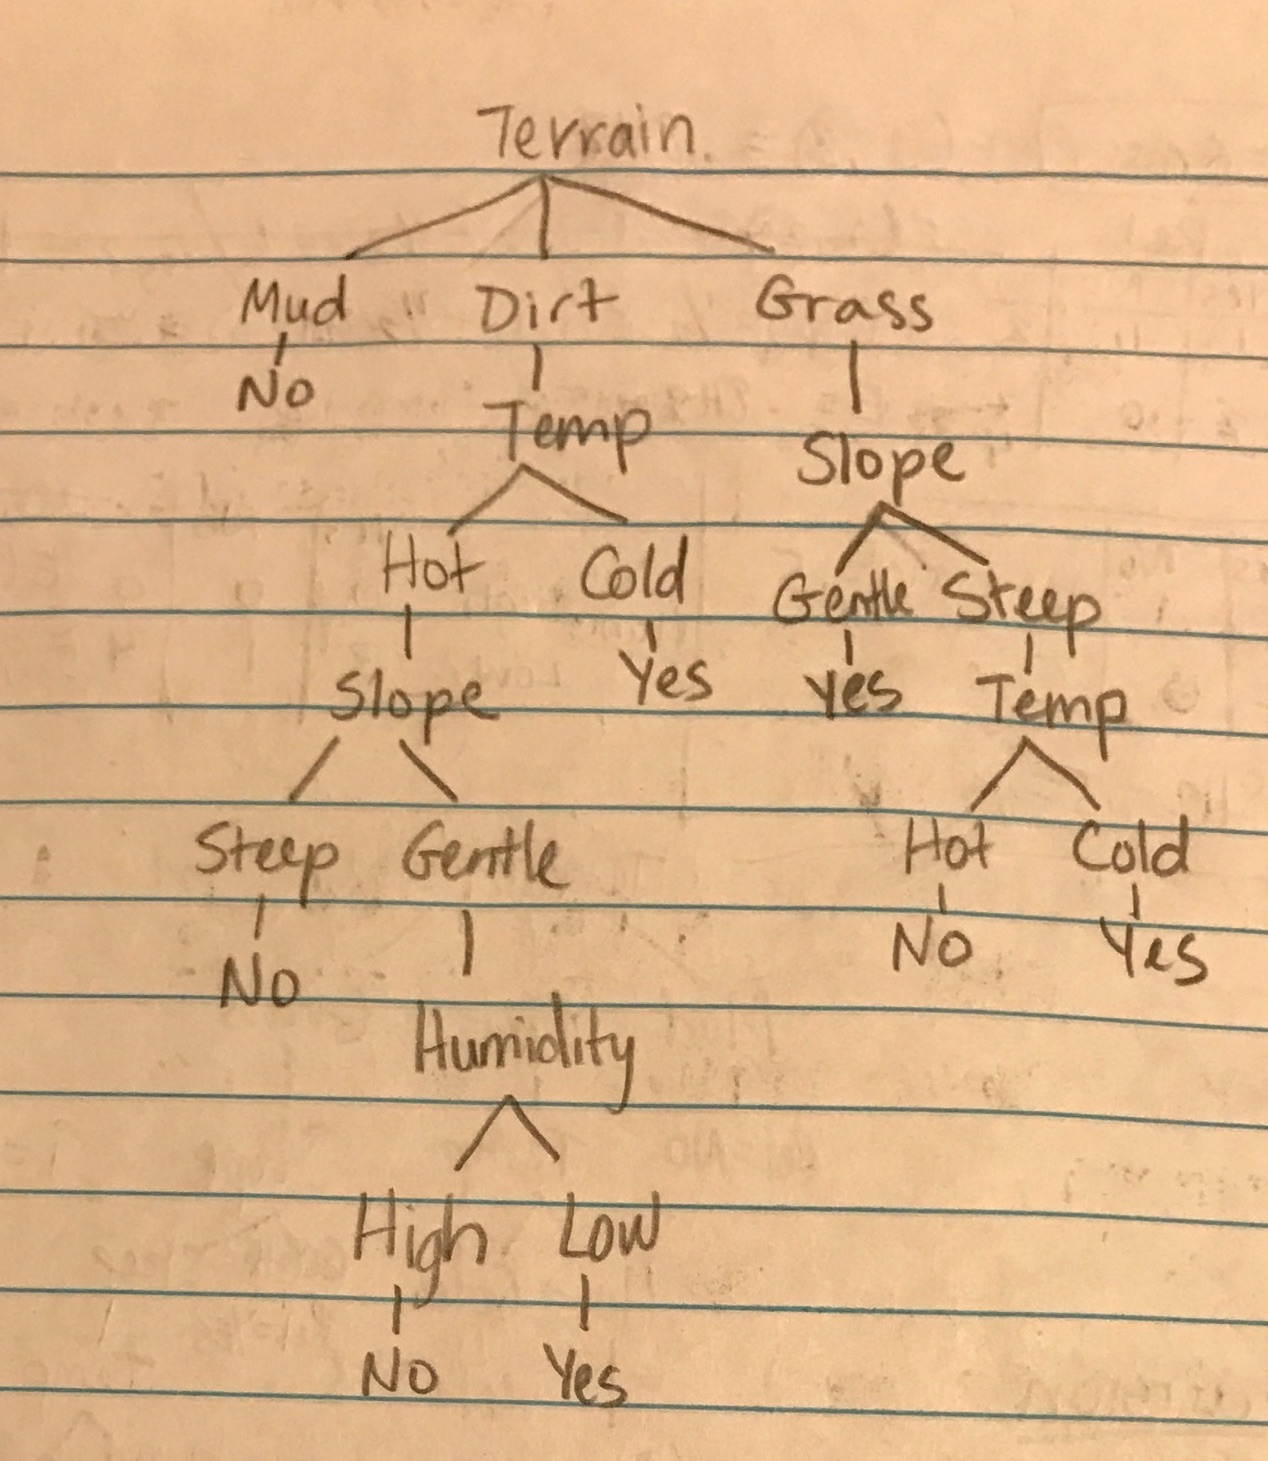 Terrain.
Mud Dirt Grass
No
Temp
Slope
Hot Cold
Gentle Steep
Slope Yes Yes Temp
Steep Gentle Hot Cold
No No Yes
Humidity
High Low
No Yes